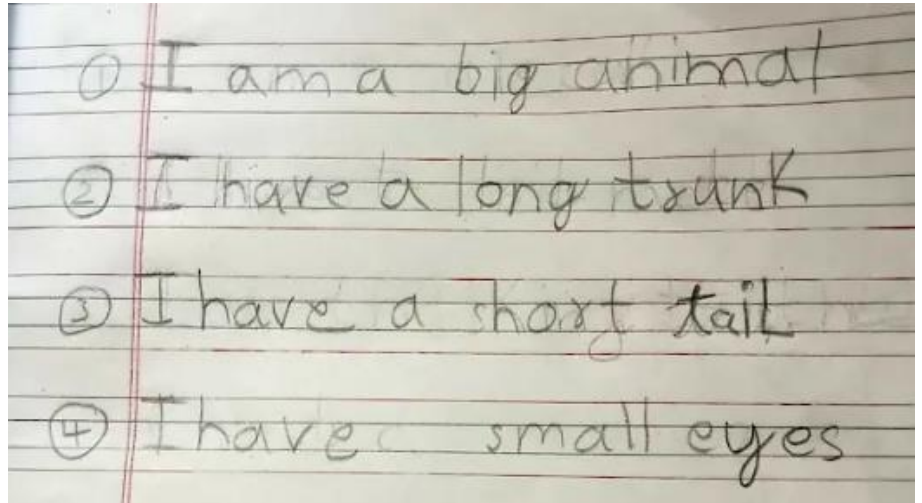 ① I am a big animal
② I have a long trunk
③ I have a short tail
④ I have small eyes